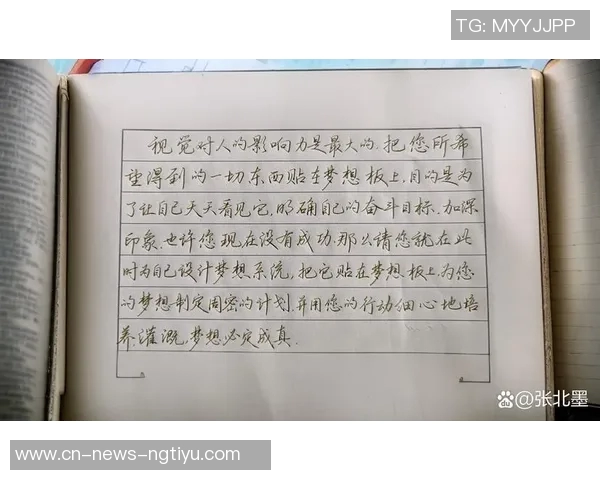 TG: MYYJJPP
视觉对人的影响力是最大的.把您所希
望得到的一切东西贴在梦想板上,目的是为
了让自己天天看见它,明确自己的奋斗目标.加深
印象.也许您现在没有成功.那么请您就在此
时为自己设计梦想系统,把它贴在梦想板上,为您
的梦想制定周密的计划.并用您的行动细心地培
养灌溉,梦想必定成真.
@张北墨
www.cn-news-ngtiyu.com